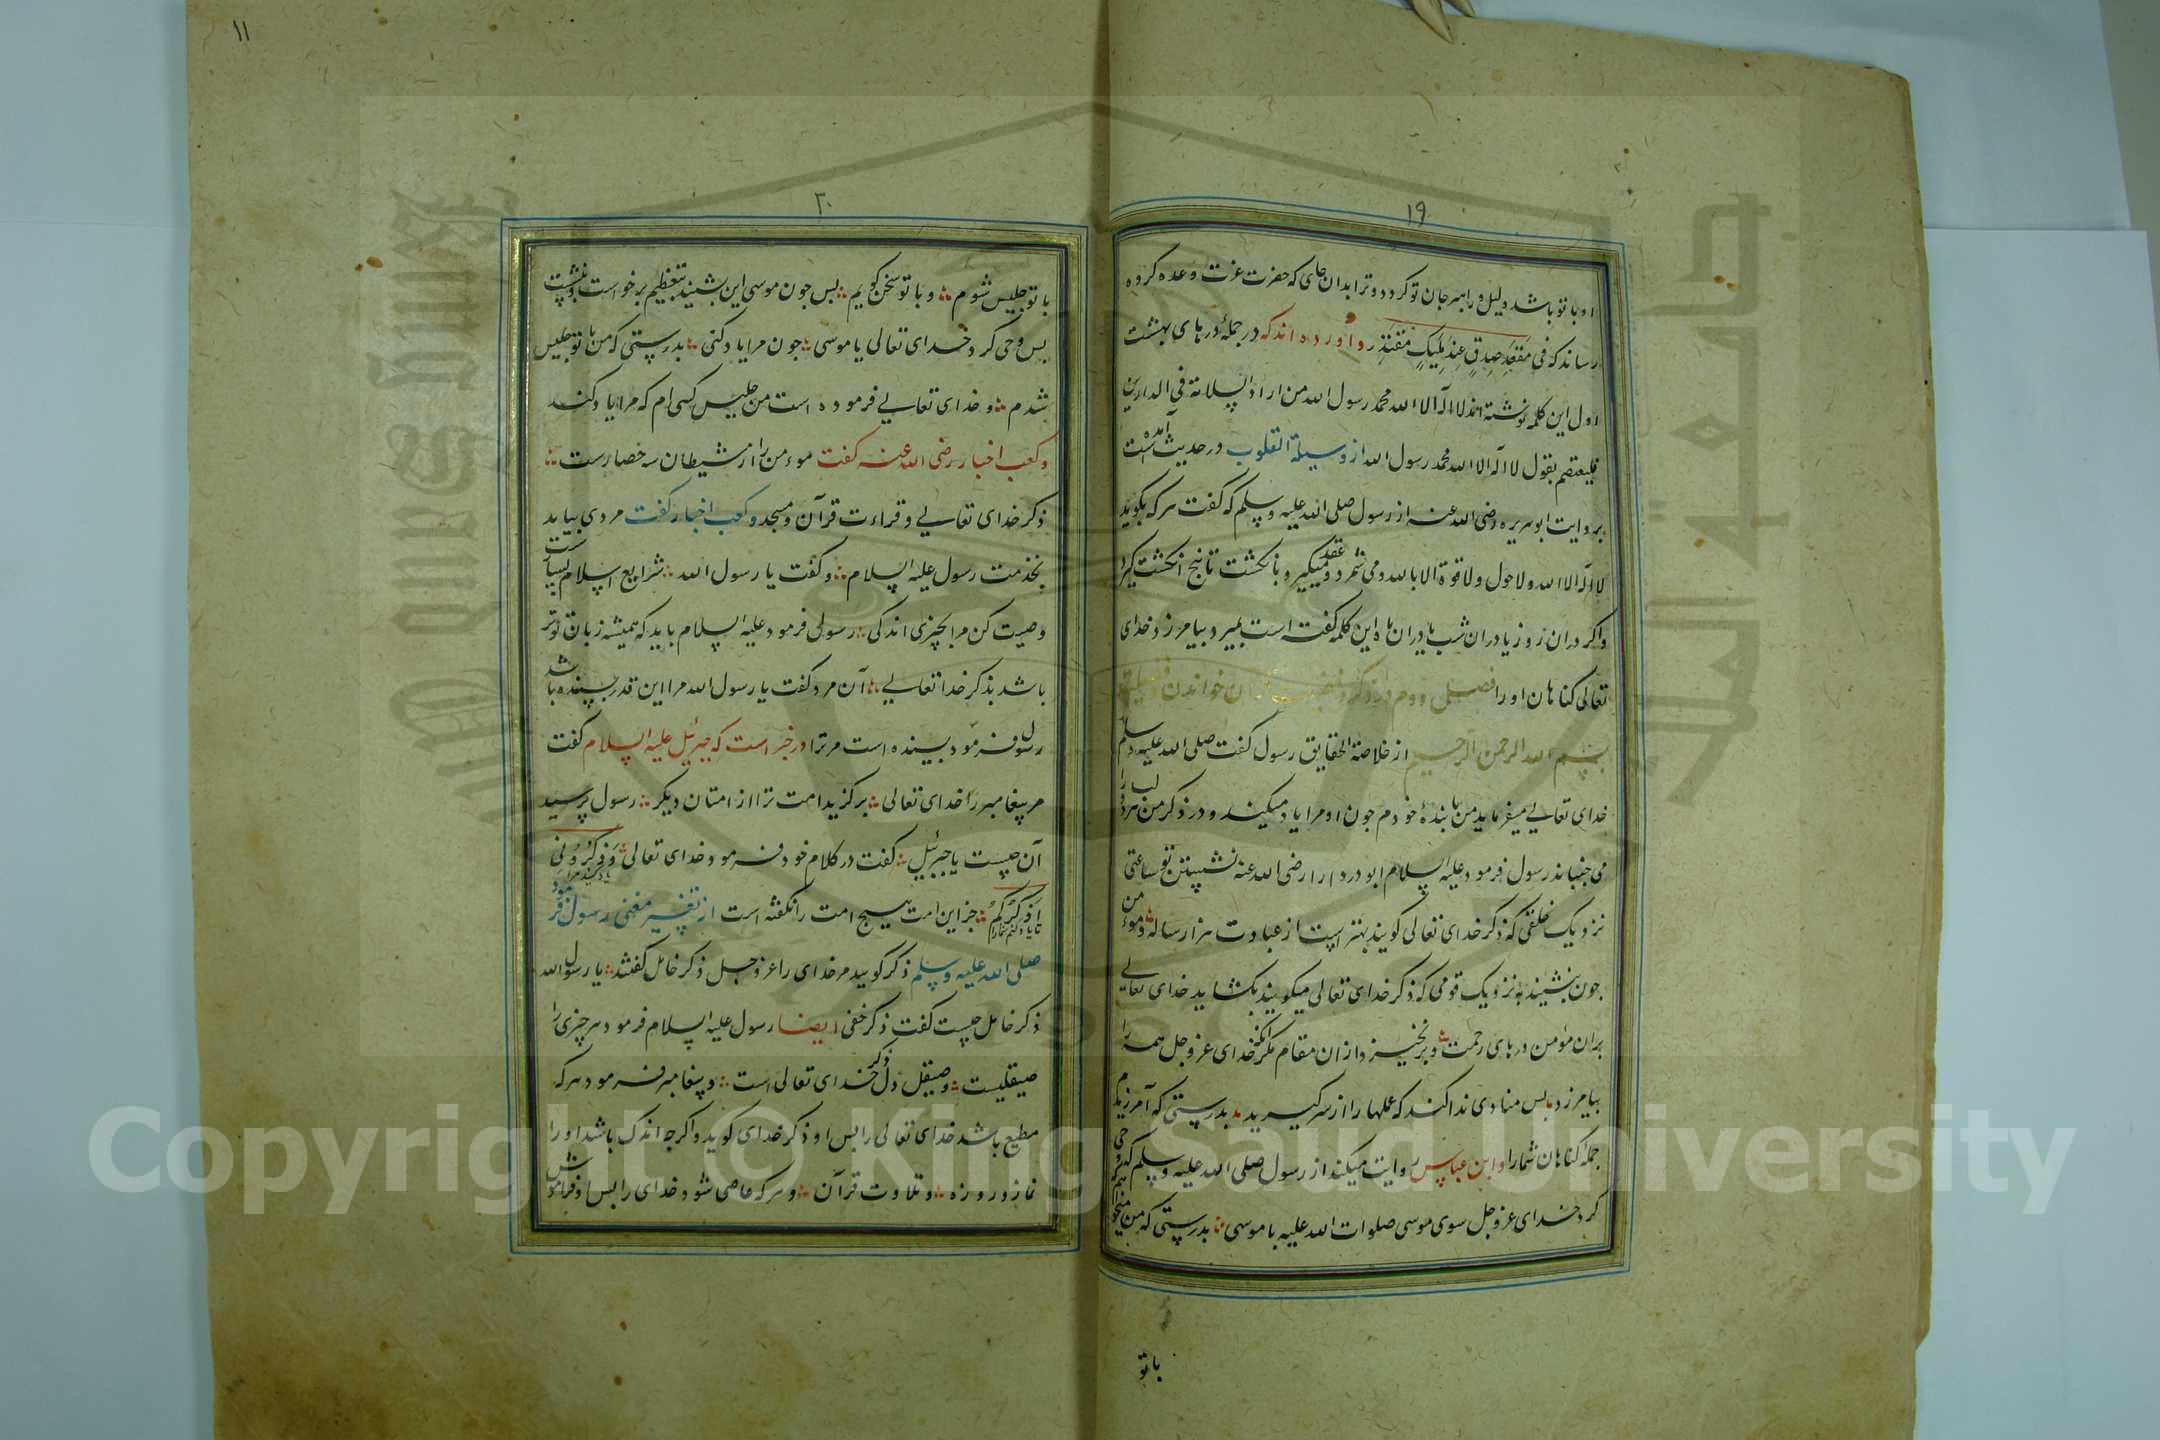 ١٩
او با تو باشد دلیل و راهبر جان تو کردد و ترا بدان جای که حضرت عزت وعده کرده
رساند که فی مَقعَدِ صِدقٍ عِندَ مَلیکٍ مُقتَدِر و آورده اند که در جملهٔ درهای بهشت
اول این کلمه نوشته اند لا اله الا الله محمد رسول الله من اراد السلامة فی الدارین
فلیعتصم بقول لا اله الا الله محمد رسول الله از وسیلة القلوب در حدیث آمده است
بروایت ابو هریره رضی الله عنه از رسول صلی الله علیه وسلم که گفت هرکه بکوید
لا اله الا الله ولا حول ولا قوة الا بالله و می شمرد و عقد میکیرد بانکشت تا پنج انکشت کیرد
واکر دران روز یا دران شب یا دران ماه این کلمه کفته است بمیرد بیامرزد خدای
تعالی کناهان او را فصل دوم در ذکر و فضیلت
بسم الله الرحمن الرحیم از خلاصة الحقایق رسول کفت صلی الله علیه وسلم
خدای تعالی میفرماید من با بندهٔ خودم جون او مرا یاد میکند و در ذکر من هر دو لب را
می جنباند رسول فرمود علیه السلام ابو دردا را رضی الله عنه نشستن تو ساعتی
نزدیک خلقی که ذکر خدای تعالی کویند بهتر است از عبادت هزار ساله و مومن
جون بنشیند به نزدیک قومی که ذکر خدای تعالی میکویند بکشاید خدای تعالی
بران مؤمن درهای رحمت و برنخیزد ازان مقام مکر انکه خدای عز وجل همه را
بیامرزد بس منادی ندا کند که عملها را از سر کیرید بدرستی که آمرزیدم
جمله کناهان شما را و ابن عباس روایت میکند از رسول صلی الله علیه وسلم که وحی
کرد خدای عز وجل سوی موسی صلوات الله علیه یا موسی بدرستی که من میخواهم که
با تو
١١
٢٠
با تو جلیس شوم و با تو سخن کویم بس جون موسی این بشنید بتعظیم برخواست و بنشست
بس وحی کرد خدای تعالی یا موسی جون مرا یاد کنی بدرستی که من با تو جلیس
شدم و خدای تعالی فرموده است من جلیس کسی ام که مرا یاد کند
و کعب اخبار رضی الله عنه کفت موءمن را از شیطان سه حصارست
ذکر خدای تعالی و قراءت قرآن و مسجد و کعب اخبار کفت مردی بیامد
بخدمت رسول علیه السلام و کفت یا رسول الله شرایع اسلام بسیارست
وصیت کن مرا بچیزی اندکی رسول فرمود علیه السلام باید که همیشه زبان تو تر
باشد بذکر خدا تعالی آن مرد کفت یا رسول الله مرا این قدر بسنده باشد
رسول فرمود بسنده است مر ترا در خبر است که جبرئیل علیه السلام کفت
مر پیغامبر را خدای تعالی برکزید امت ترا از امتان دیکر رسول پرسید
آن چیست یا جبرئیل کفت در کلام خود فرمود خدای تعالی فَاذکُرُونی
یاد کنید مرا
اَذکُرکُم جز این امت هیچ امت را نکفته است از تفسیر مغنی رسول فرمود
تا یاد کنم شما را
صلی الله علیه وسلم ذکر کویید مر خدای را عز وجل ذکر خامل کفتند یا رسول الله
ذکر خامل چیست کفت ذکر خفی ایضا رسول علیه السلام فرمود هر چیزی را
صیقلیست و صیقل دل ذکر خدای تعالی است و پیغامبر فرمود هرکه
مطیع باشد خدای تعالی را بس او ذکر خدای کوید و اکرجه اندک باشد او را
نماز و روزه و تلاوت قرآن و هرکه عاصی شود خدای را بس او فراموش
Copyright © King Saud University